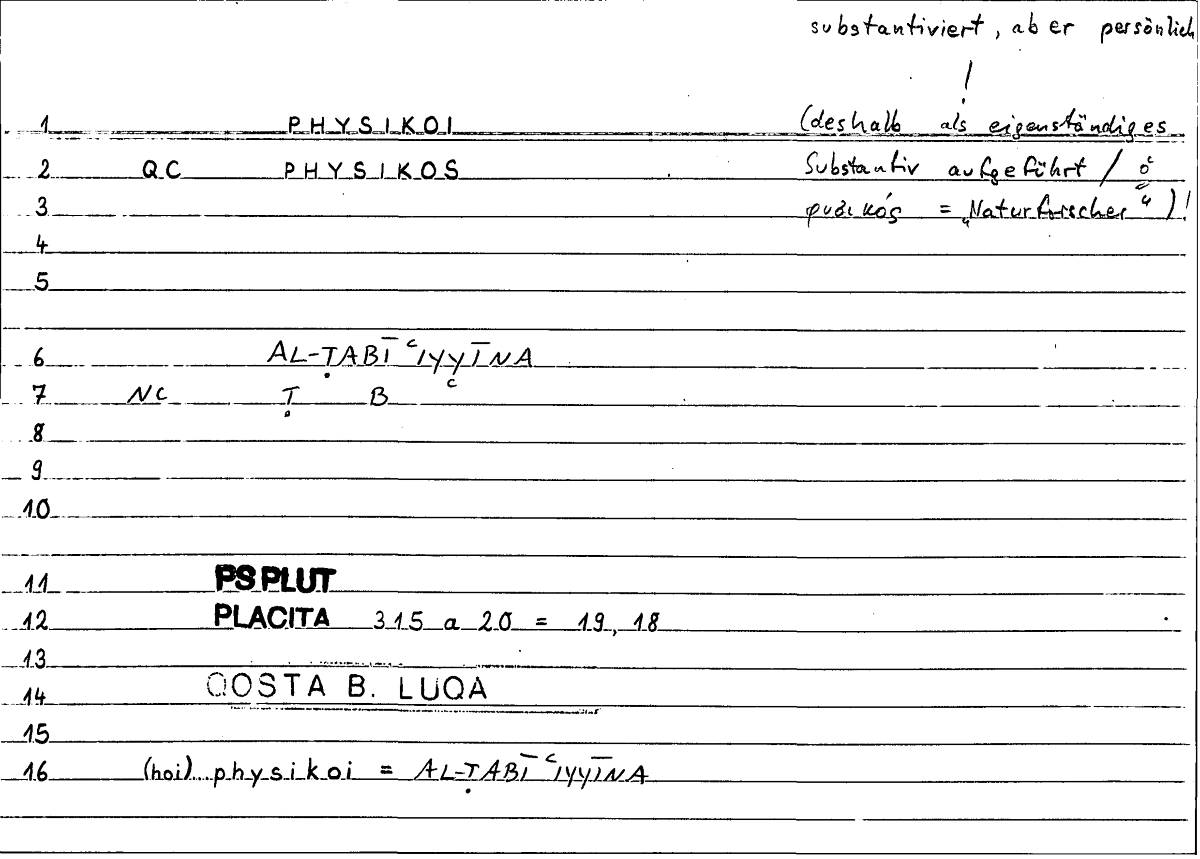 substantiviert, aber persönlich
!
1 PHYSIKOI (deshalb als eigenständiges
2 QC PHYSIKOS Substantiv aufgeführt / ὁ
3 φυσικός = „Naturforscher“)!
4
5
6 AL-ṬABĪʿIYYĪNA
7 NC Ṭ B ʿ
8
9
10
11 PS PLUT
12 PLACITA 315 a 20 = 19, 18
13
14 QOSTA B. LUQA
15
16 (hoi) physikoi = AL-ṬABĪʿIYYĪNA